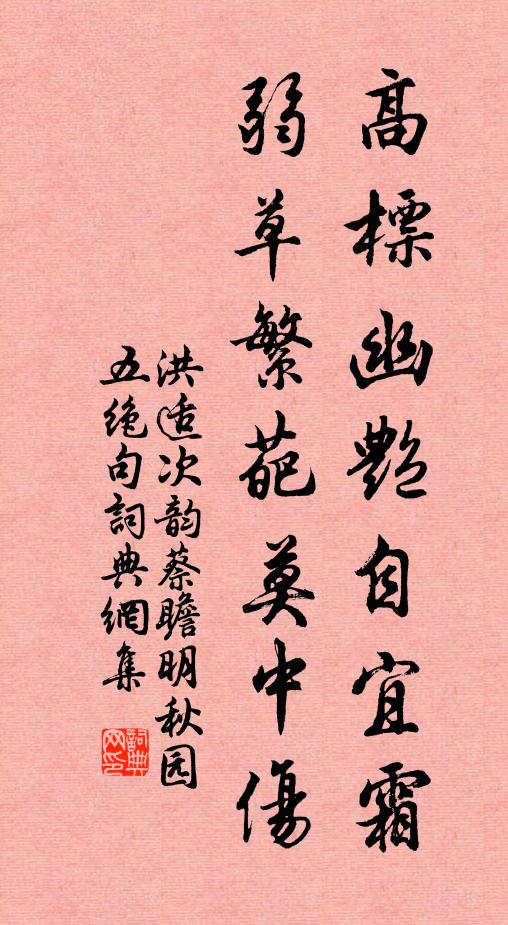 高標幽艷自宜霜
弱草繁葩莫中傷
洪适次韵蔡瞻明秋园
五绝句詞典網集
詞典网印